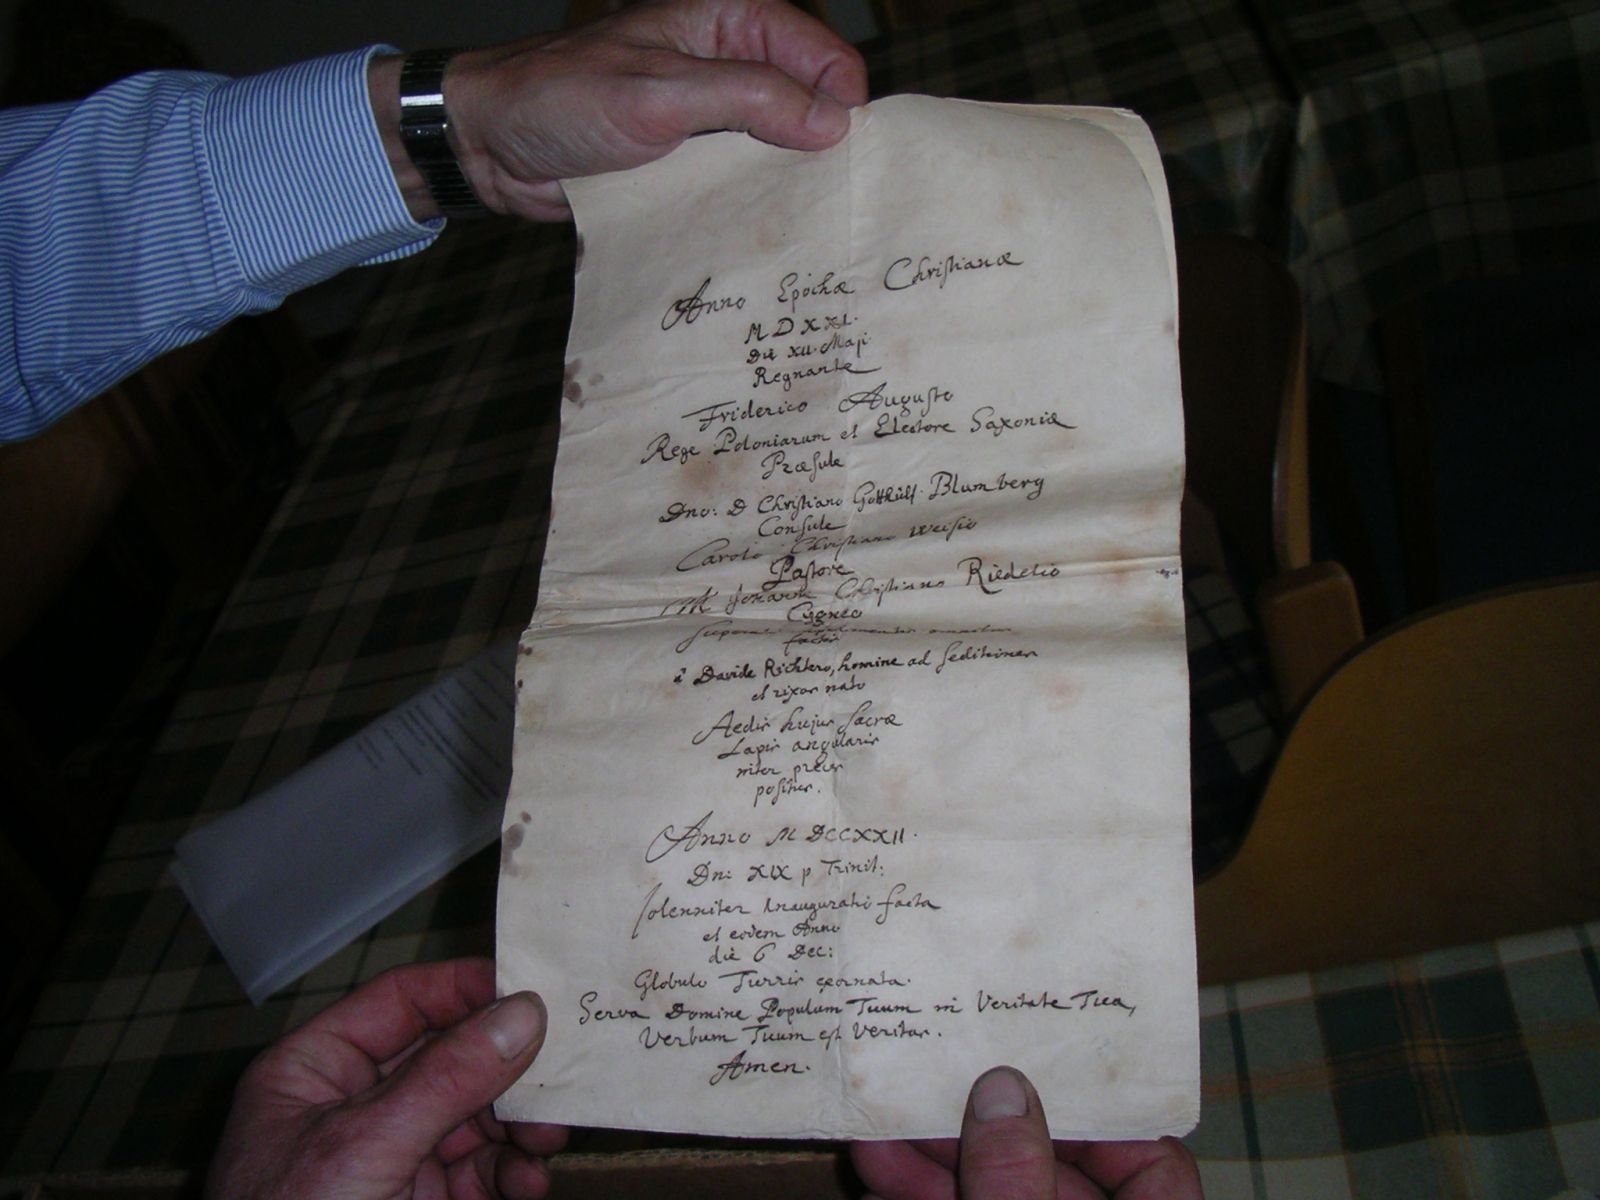 Anno Epochæ Christianæ
M D XXI.
Die XII. Maji
Regnante
Friderico Augusto
Rege Poloniarum et Electore Saxoniæ
Præsule
Dno: D Christiano Gotthülf Blumberg
Consule
Carolo Christiano Weisio
Pastore
M Johanne Christiano Riedelio
Cygneo
factis
à Davide Richtero, homine ad seditiones
et rixas nato
Aedis hujus sacræ
Lapis angularis
inter preces
positus.
Anno M DCCXXII.
Dn: XIX p Trinit:
solenniter Inauguratio facta
et eodem Anno
die 6 Dec:
Globulo Turris exornata.
Serva Domine Populum Tuum in Veritate Tua,
Verbum Tuum est Veritas.
Amen.